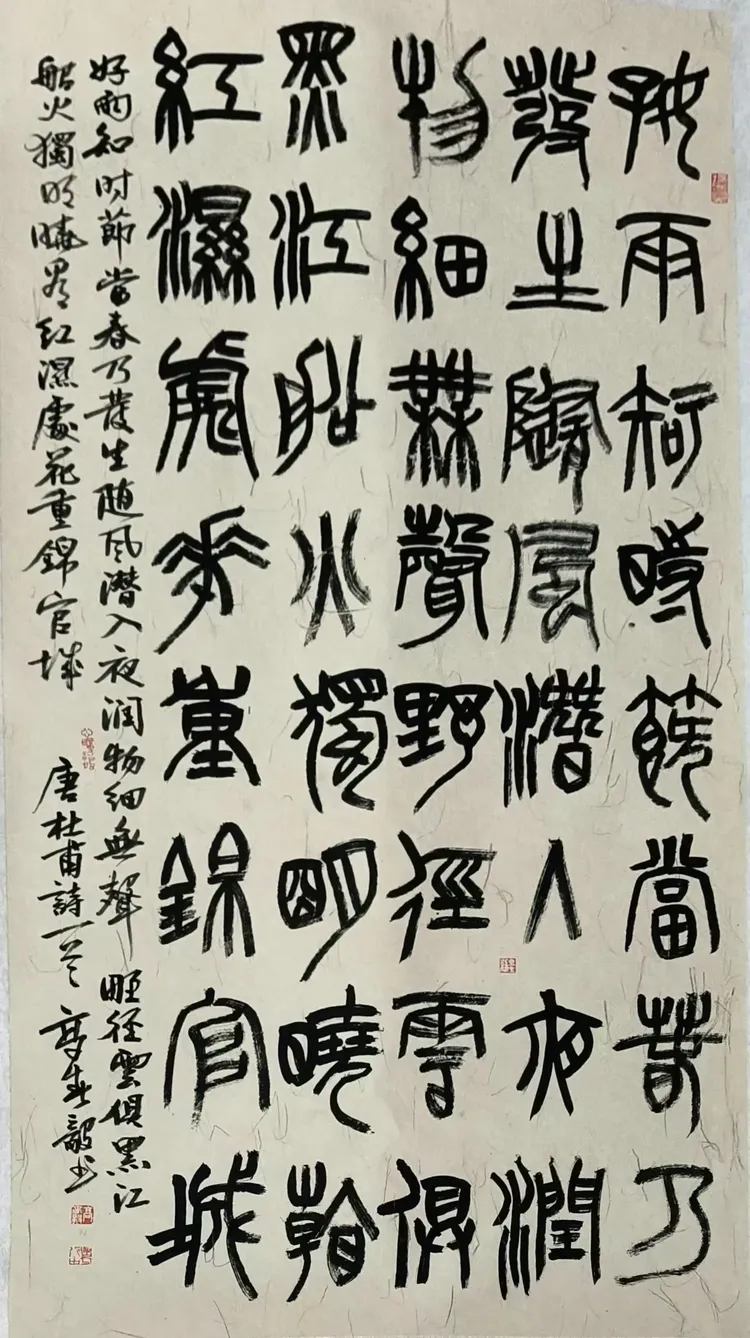 好雨知時節當春乃
發生隨風潛入夜潤
物細無聲野徑雲俱
黑江船火獨明曉看
紅濕處花重錦官城
好雨知时節當春乃發生随风潛入夜润物细無聲野徑雲俱黑江
船火獨明曉看红濕處花重錦官城 唐杜甫詩一首